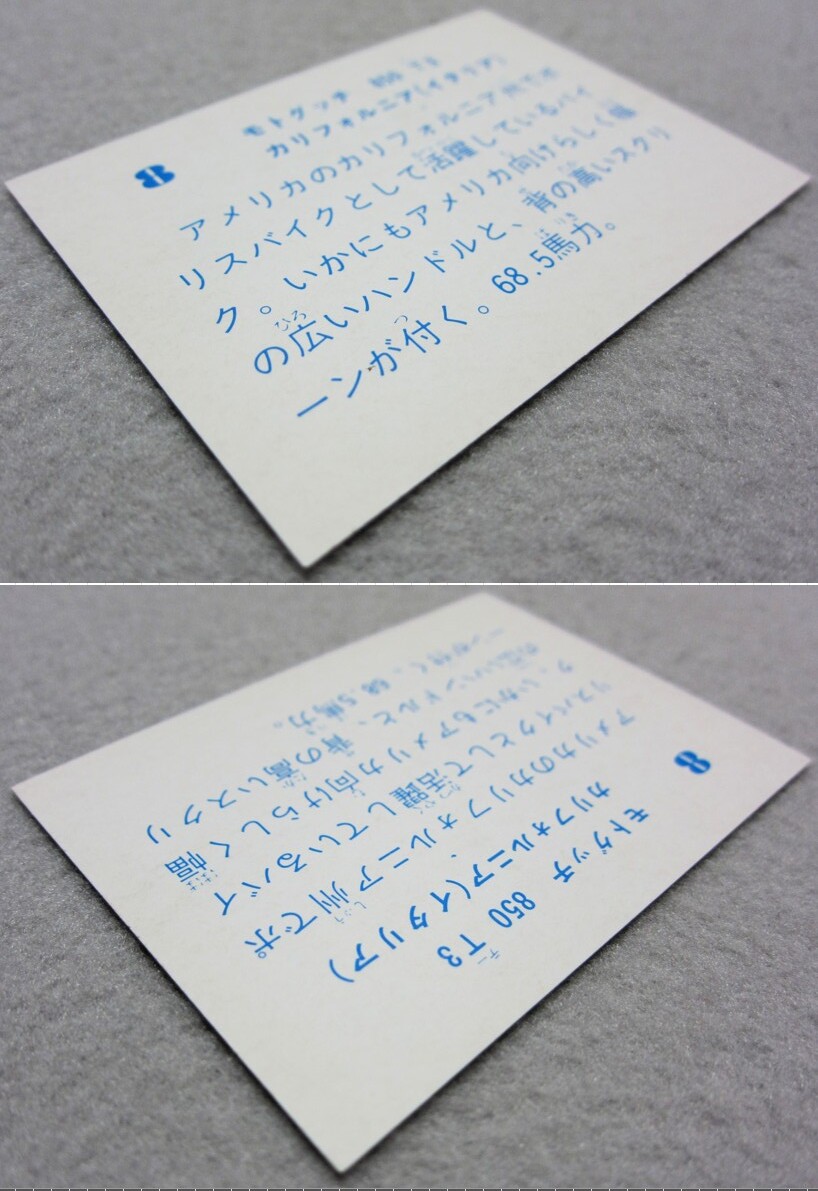 8
モトグッチ 850 T3
カリフォルニア(イタリア)
アメリカのカリフォルニア州でポ
リスバイクとして活躍しているバイ
ク。いかにもアメリカ向けらしく幅
の広いハンドルと、背の高いスクリ
ーンが付く。68.5馬力。
8
モトグッチ 850 T3
カリフォルニア(イタリア)
アメリカのカリフォルニア州でポ
リスバイクとして活躍しているバイ
ク。いかにもアメリカ向けらしく幅
の広いハンドルと、背の高いスクリ
ーンが付く。68.5馬力。